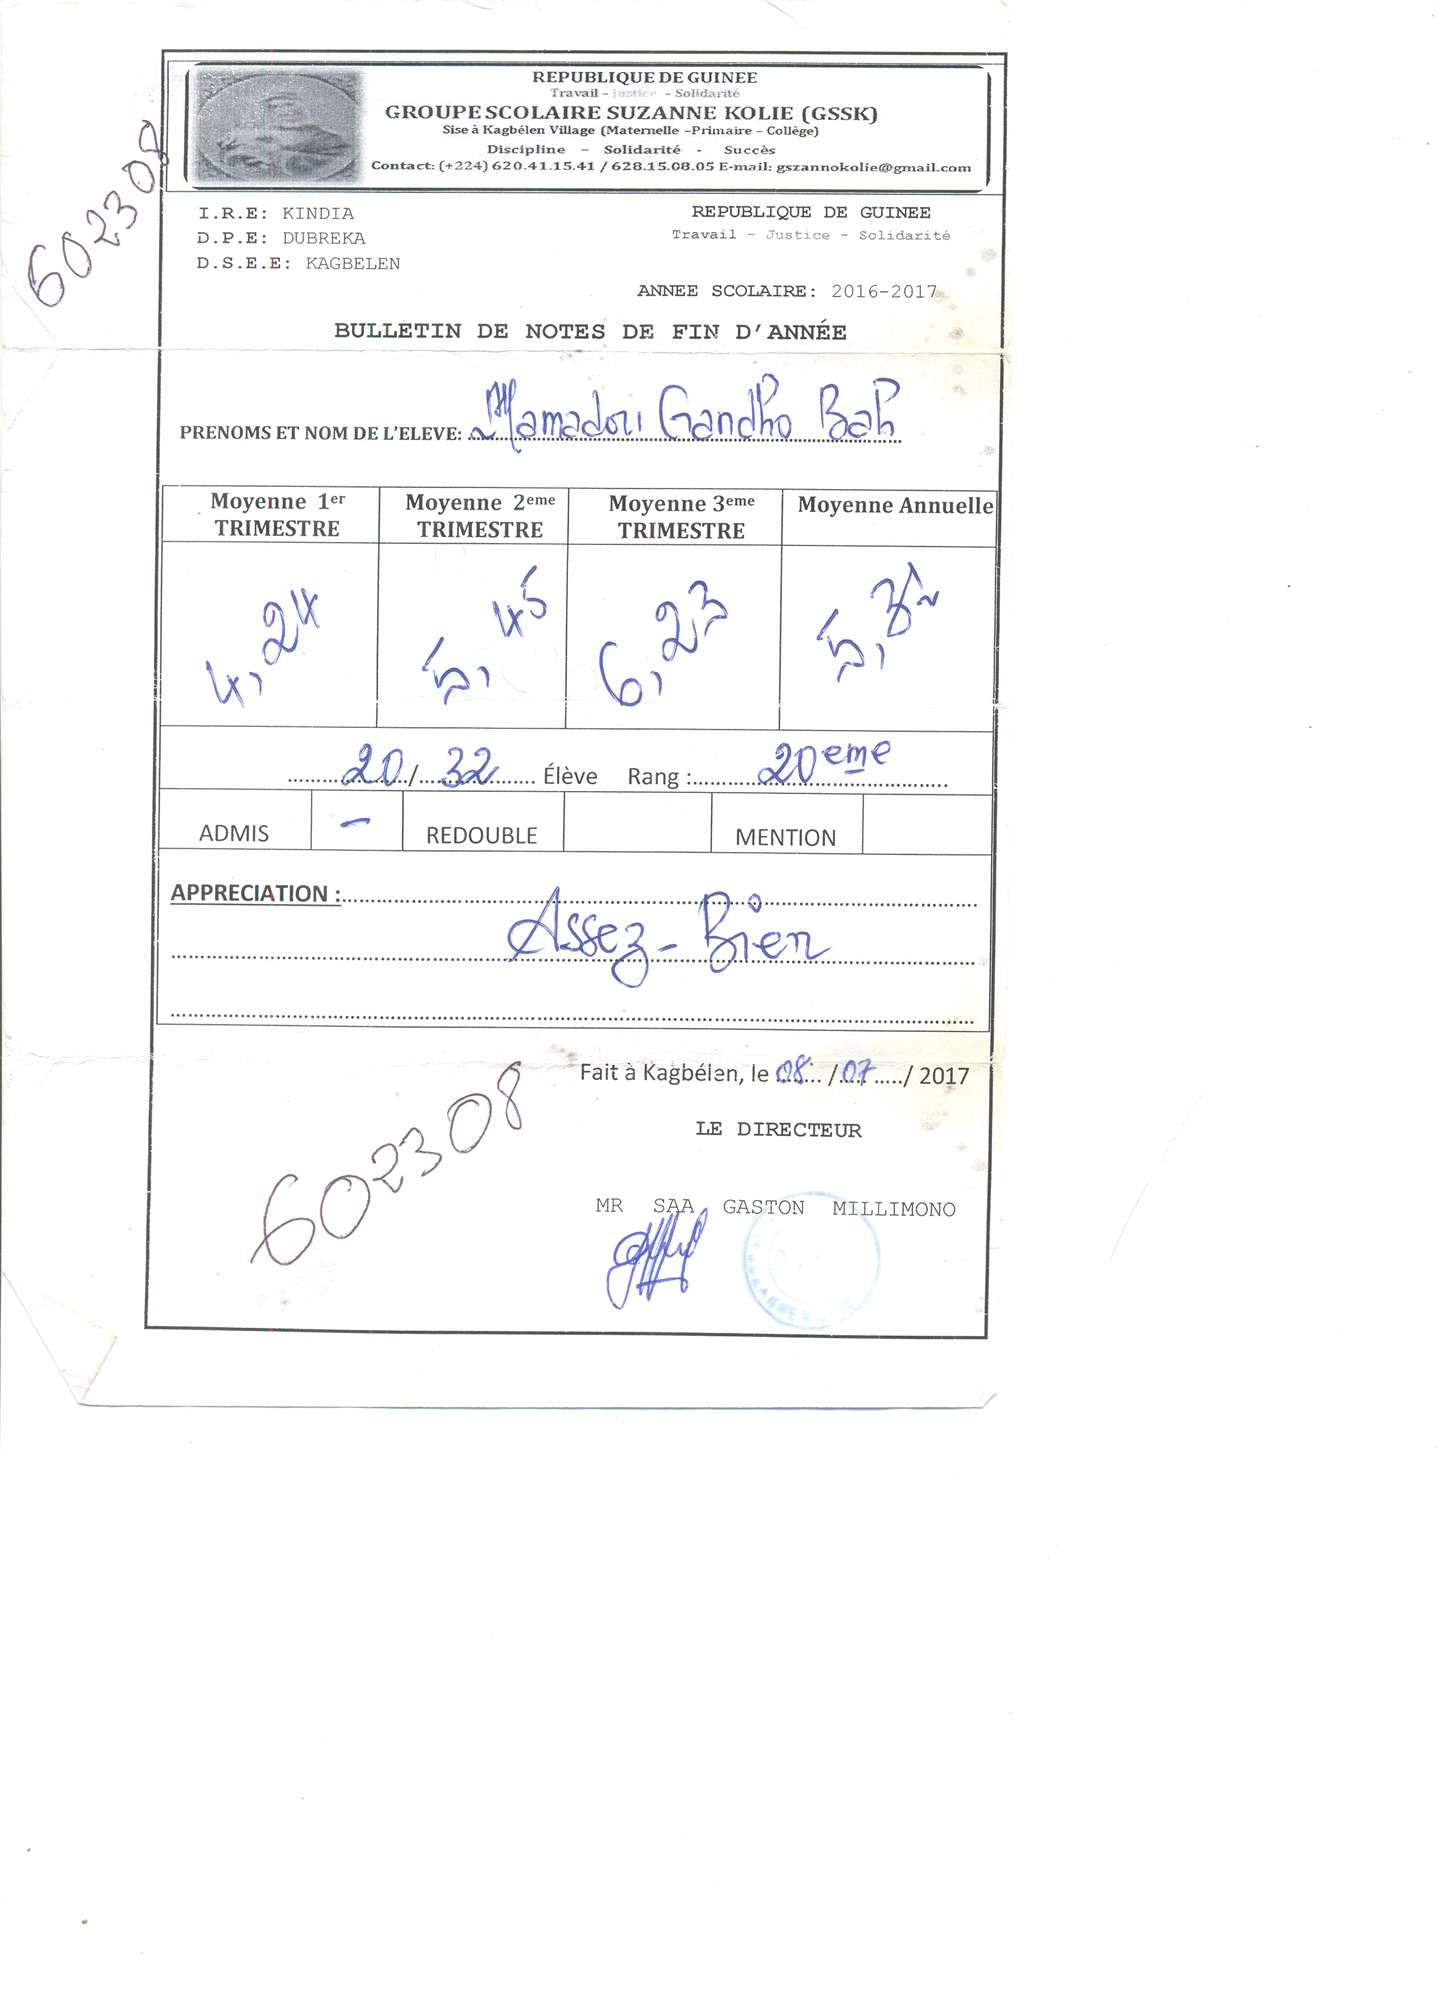 REPUBLIQUE DE GUINEE
Travail - Justice - Solidarité
GROUPE SCOLAIRE SUZANNE KOLIE (GSSK)
Sise à Kagbélen Village (Maternelle -Primaire - Collège)
Discipline - Solidarité - Succès
Contact: (+224) 620.41.15.41 / 628.15.08.05 E-mail: gszannokolie@gmail.com
602308
I.R.E: KINDIA
D.P.E: DUBREKA
D.S.E.E: KAGBELEN
REPUBLIQUE DE GUINEE
Travail - Justice - Solidarité
ANNEE SCOLAIRE: 2016-2017
BULLETIN DE NOTES DE FIN D'ANNÉE
PRENOMS ET NOM DE L'ELEVE: Mamadou Gandho Bah
Moyenne 1er TRIMESTRE
Moyenne 2eme TRIMESTRE
Moyenne 3eme TRIMESTRE
Moyenne Annuelle
4,24
5,45
6,23
20/32 Élève Rang : 20eme
ADMIS - REDOUBLE MENTION
APPRECIATION :
Assez-Bien
Fait à Kagbélen, le 08 /07 / 2017
LE DIRECTEUR
602308
MR SAA GASTON MILLIMONO